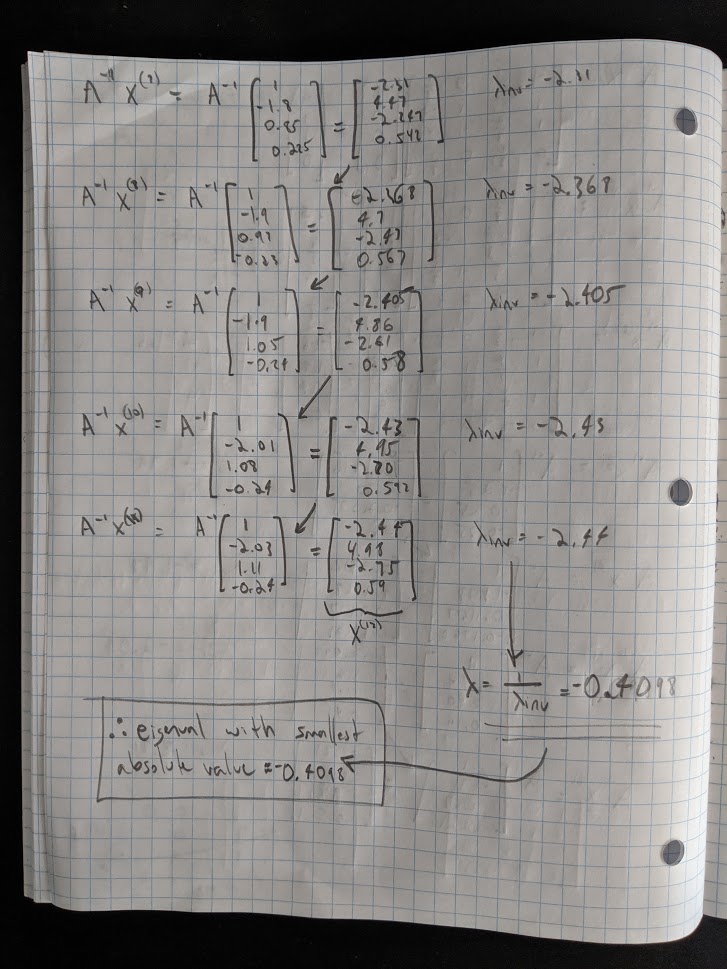 A⁻¹ X⁽⁷⁾ = A⁻¹ [1, -1.8, 0.85, 0.225] = [-2.31, 4.47, -2.247, 0.542] λinv = -2.31
A⁻¹ X⁽⁸⁾ = A⁻¹ [1, -1.9, 0.97, -0.23] = [-2.368, 4.7, -2.47, 0.567] λinv = -2.368
A⁻¹ X⁽⁹⁾ = A⁻¹ [1, -1.9, 1.05, -0.24] = [-2.405, 4.86, -2.61, 0.58] λinv = -2.405
A⁻¹ X⁽¹⁰⁾ = A⁻¹ [1, -2.01, 1.08, -0.24] = [-2.43, 4.95, -2.70, 0.592] λinv = -2.43
A⁻¹ X = A⁻¹ [1, -2.03, 1.11, -0.24] = [-2.44, 4.98, -2.75, 0.59] λinv = -2.44
X⁽¹²⁾
λ = 1/λinv = -0.4098
∴ eigenval with smallest
absolute value = -0.4098